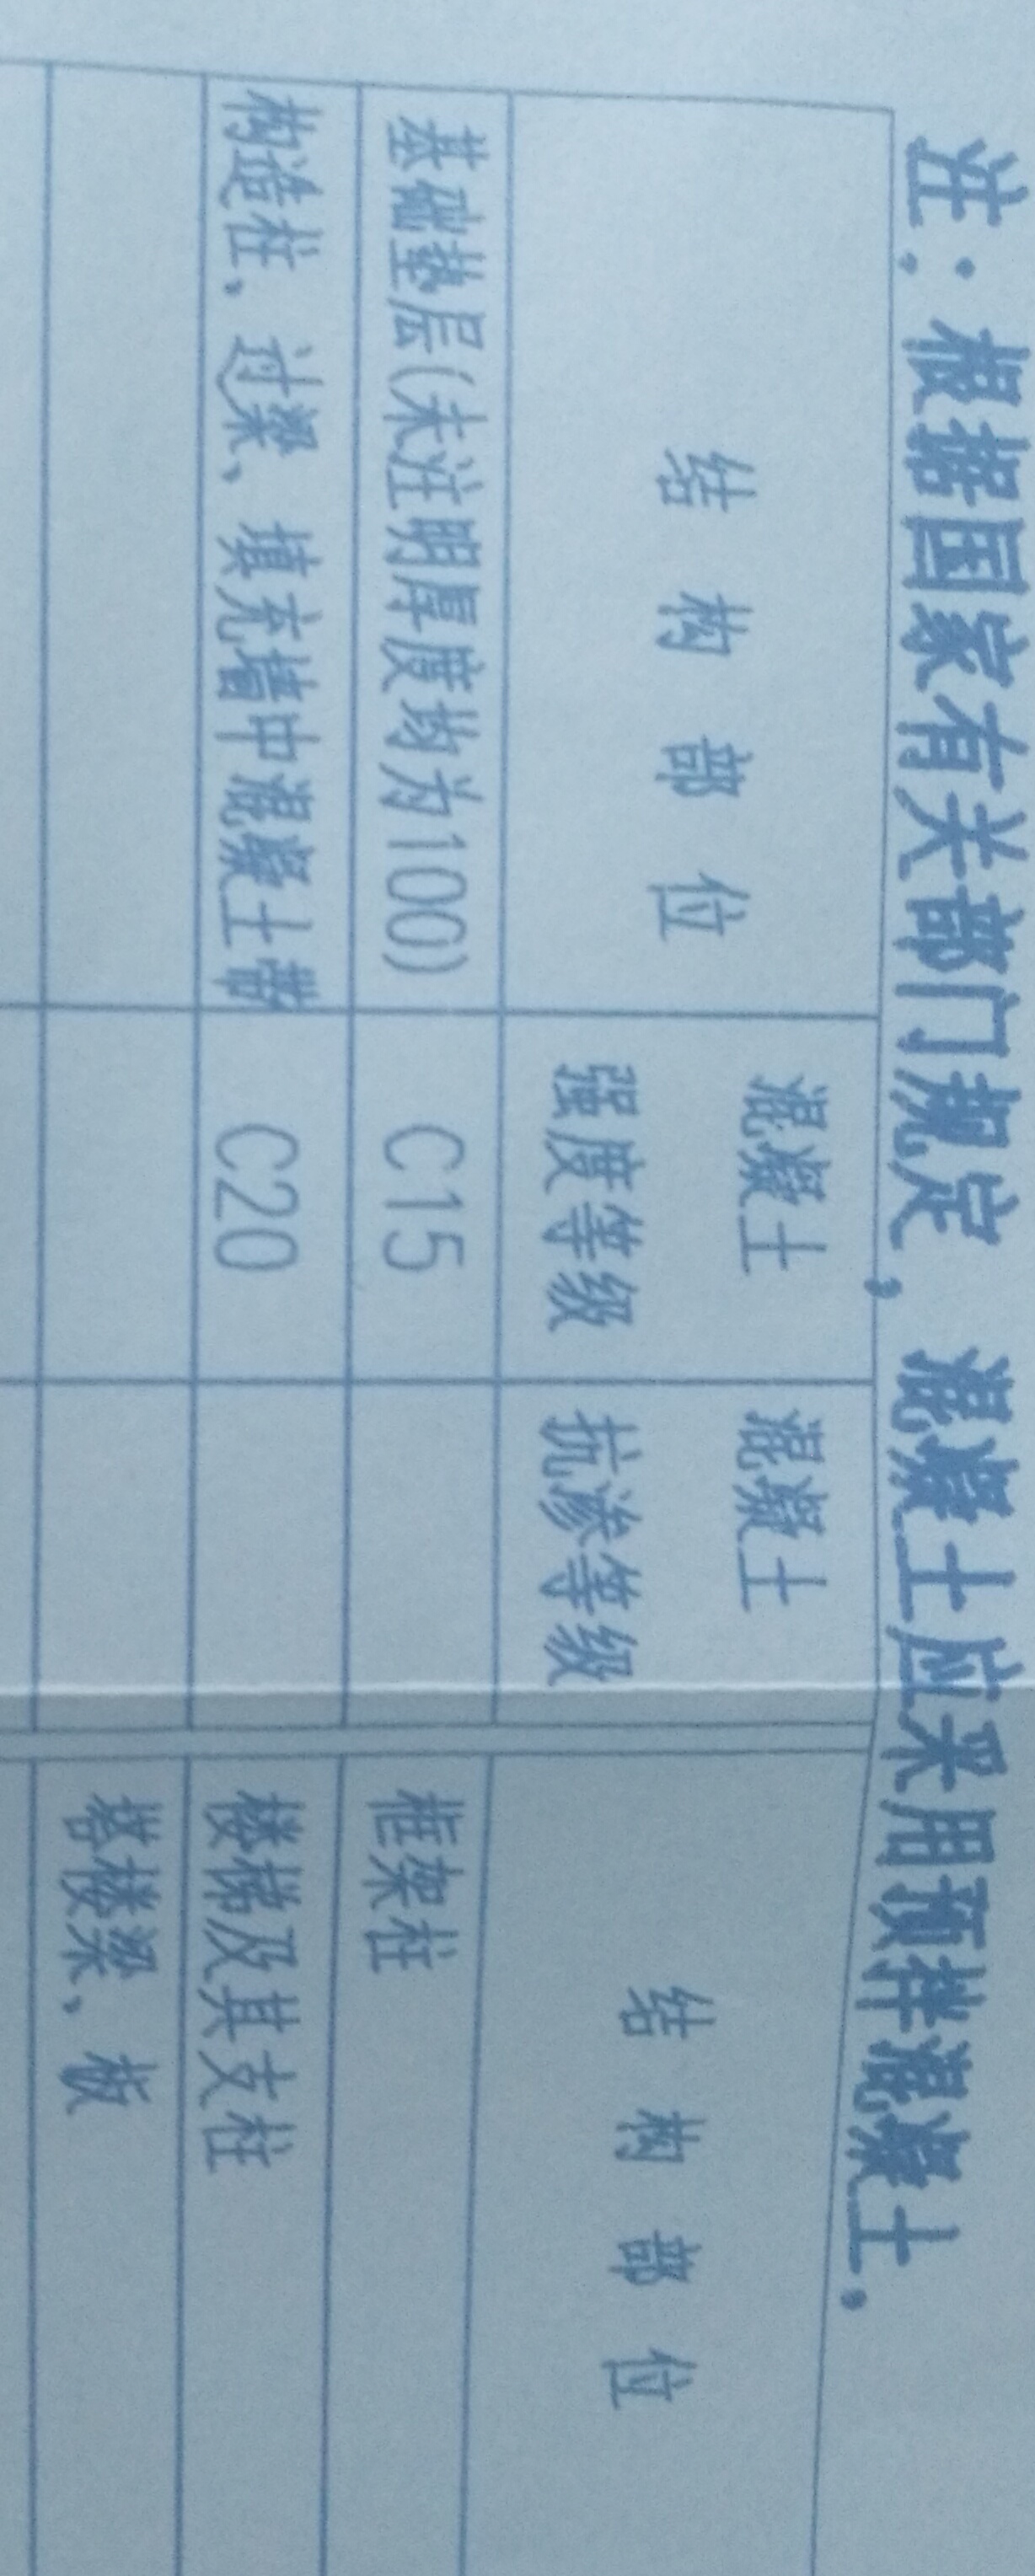 注：根据国家有关部门规定，混凝土应采用预拌混凝土.
结构部位
混凝土
强度等级
混凝土
抗渗等级
结构部位
基础垫层(未注明厚度均为100)
C15
框架柱
构造柱、过梁、填充墙中混凝土带
C20
楼梯及其支柱
塔楼梁、板